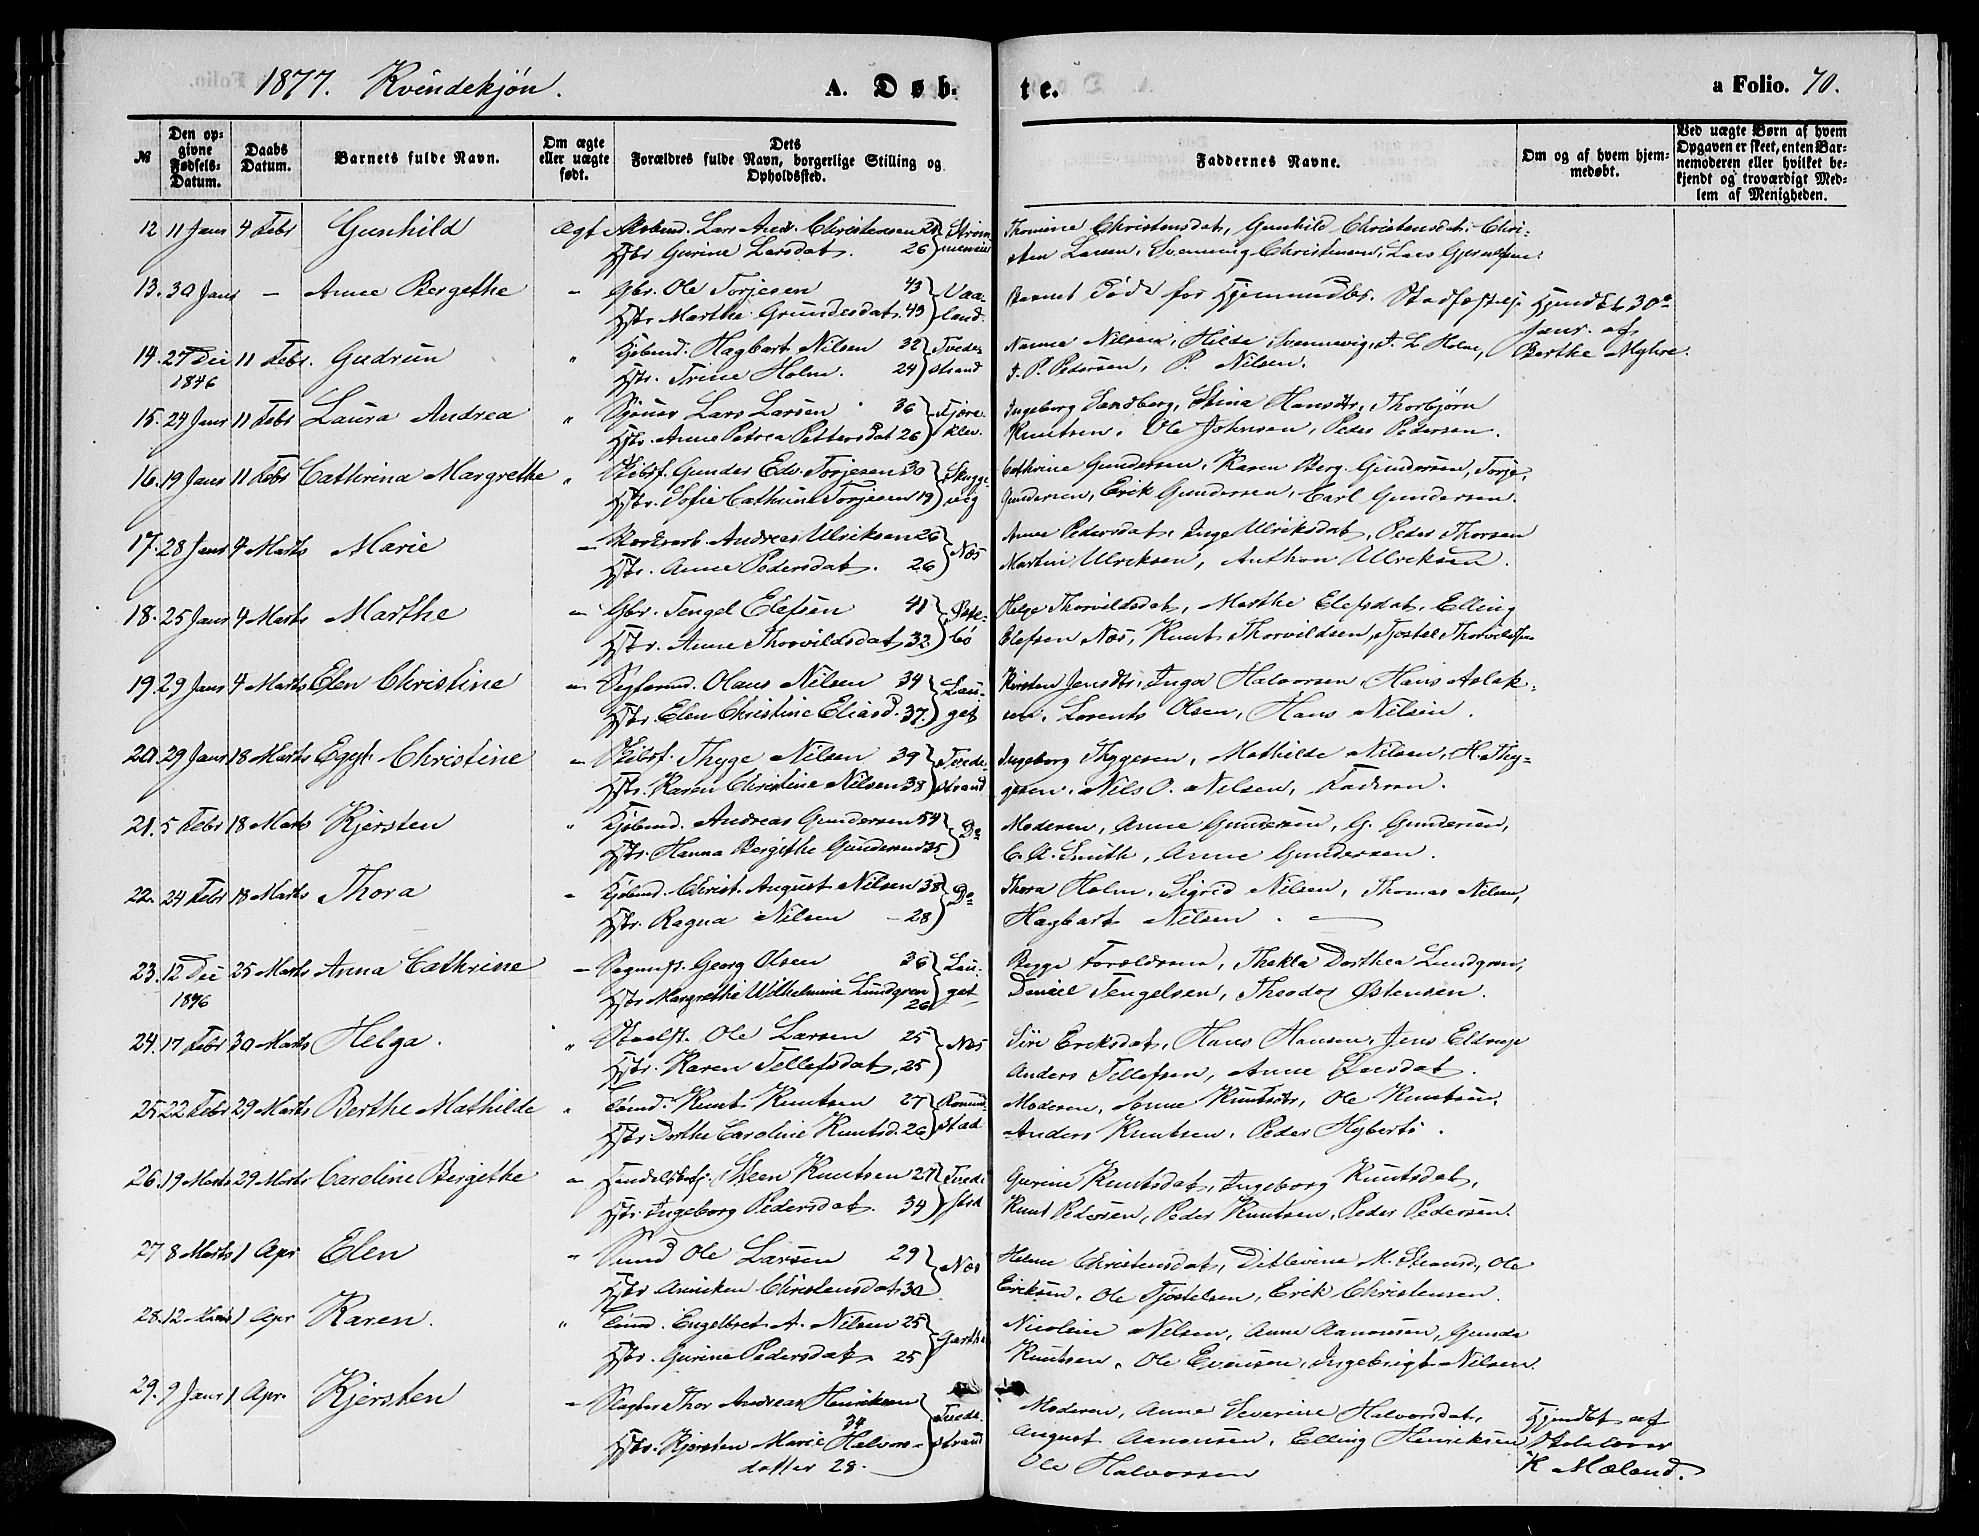 1877. Kvindekjøn.
A. Døb-
te.
a Folio. 70.
№
Den op-
givne
Fødsels-
Datum.
Daabs
Datum.
Barnets fulde Navn.
Om ægte
eller uægte
født.
Dets
Forældres fulde Navn, borgerlige Stilling og
Opholdssted.
Faddernes Navne.
Om og af hvem hjem-
medøbt.
Ved uægte Børn af hvem
Opgaven er skeet, enten Bar-
nemoderen eller hvilket be-
kjendt og troværdigt Med-
lem af Menigheden.
12 11 Janr 4 Febr Gunhild Ægt Lars And. Christensen
Hstr Gurine Larsdat. 26
Thomine Christensdat, Gunhild Christensdat, Chri-
sten Larsen, Svenning Christensen, Lars
13. 30 Janr - Anne Bergethe - Gbr. Ole Torjesen 43 Vaa-
Hstr. Marthe Grundesdat. 43 land.
Barnet død før Stadfæstelse. Hjemdbt 30te
Janr. af
Berthe Myhre.
14. 27 Dec 11 Febr. Gudrun " Kjøbmd. Hagbart Nilsen 32 Tvede
1876 Hstr. Trine Holm. 24 strand
Nanna Nilsen, Hilde Svennevig, A. L. Holm,
J. P. Pedersen, P. Nilsen.
15. 24 Janr 11 Febr Laura Andrea " Lars Larsen 36 Fjære
Hstr. Anne Petrea Pettersdat 26 klev.
Ingeborg Sandberg, Stina Hansdtr, Thorbjørn
Knutsen, Ole Johnsen, Peder Pedersen.
16. 19 Janr 11 Febr Cathrina Margrethe " Skibsf. Gunder Edv. Torjesen 30 Skugge
Hstr. Sofie Cathrine Torjesen 19 vig
Cathrine Gundersen, Karen Berg. Gundersen, Torje
Gundersen, Erik Gundersen, Carl Gundersen.
17. 28 Janr 4 Marts Marie - Andreas Ulriksen 26
Hstr. Anne Pedersdat. 26 Næs
Anne Pedersdat, Inge Ulriksdat, Peder Thorsen
Martin Ulriksen, Anthon Ulriksen.
18. 25 Janr 4 Marts Marthe - Gbr. Tengel Elefsen 41 Øste-
Hstr. Anne Thorvildsdat 32 bö
Helge Thorvildsdat, Marthe Elefsdat, Elling
Elefsen Næs, Knut Thorvildsen, Tjostel Thorvildsen
19. 29 Janr 4 Marts Elen Christine - Olaus Nilsen 34 Lau-
Hstr. Elen Christine Eliasd. 37. get
Kirsten Jensdtr, Inga Halvorsen, Hans Aslak-
sen, Lorents Olsen, Hans Nilsen.
20. 29 Janr 18 Marts Egyt. Christine - Skibsf. Thyge Nilsen 39 Tvede-
Hstr. Karen Christine Nilsen 38 strand
Ingeborg Thygesen, Mathilde Nilsen, H. Thy-
gesen, Nils O. Nilsen, Faderen.
21. 5 Febr 18 Marts Kjersten " Kjøbmd. Andreas Gundersen 54
Hstr. Hanna Bergithe Gundersen 35 Do
Moderen, Anne Gundersen, G. Gundersen,
C. A. Smith, Anne Gundersen.
22. 24 Febr 18 Marts Thora - Kjøbmd. Christ. August Nilsen 38
Hstr. Ragna Nilsen - 28 Do
Thora Holm, Sigrid Nilsen, Thomas Nilsen,
Hagbart Nilsen.
23. 12 Dec 25 Marts Anna Cathrine - Georg Olsen 36 Lau-
1876 Hstr Margrethe Wilhelmine Lundgren get
26
Begge Forældrene, Thekla Dorthea Lundgren,
Daniel Tengelsen, Theodor Østensen.
24. 17 Febr 30 Marts Helga. " Ole Larsen 25 Næs
Hstr. Karen Tellefsdat, 25
Siri Eriksdat, Hans Hansen, Jens Eldrup
Anders Tellefsen, Anne
25. 22 Febr 29 Marts Berthe Mathilde " Tömd. Knut Knutsen 27 Romund-
Hstr Dorthe Caroline Knutsd. 26 stad
Moderen, Knutsdtr, Ole Knutsen,
Anders Knutsen, Peder Hyberts.
26. 19 Marts 29 Marts Caroline Bergethe - Steen Knutsen 27 Tvede
Hstr. Ingeborg Pedersdat. 34 strd
Gurine Knutsdat, Ingeborg Knutsdat,
Knut Pedersen, Peder Knutsen, Peder Pedersen.
27 8 Marts 1 Apr Elen " Ole Larsen 29
Hstr Anniken Christensdat. 30 Næs
Helene Christensdat, Ditlevine M. Ole
Eriksen, Ole Tjostelsen, Erik Christensen.
28. 12 Marts 1 Apr Karen. " Tömd. Engelbret A. Nilsen 25
Hstr. Gurine Pedersdat. 25 Garthe
Nicoline Nilsen, Anne Aanonsen, Gunda
Knutsen, Ole Evensen, Ingebrigt Nilsen.
29. 9 Janr 1 Apr. Kjersten - Slagter Thor Andreas Henriksen
34 Tvede
Hstr. Kjersten Marie Halvors- strand
datter 28.
Moderen, Anne Severine Halvorsdat,
August Aanonsen, Elling Henriksen,
Ole Halvorsen
Hjemdbt af
Skolelærer
K Mæland.